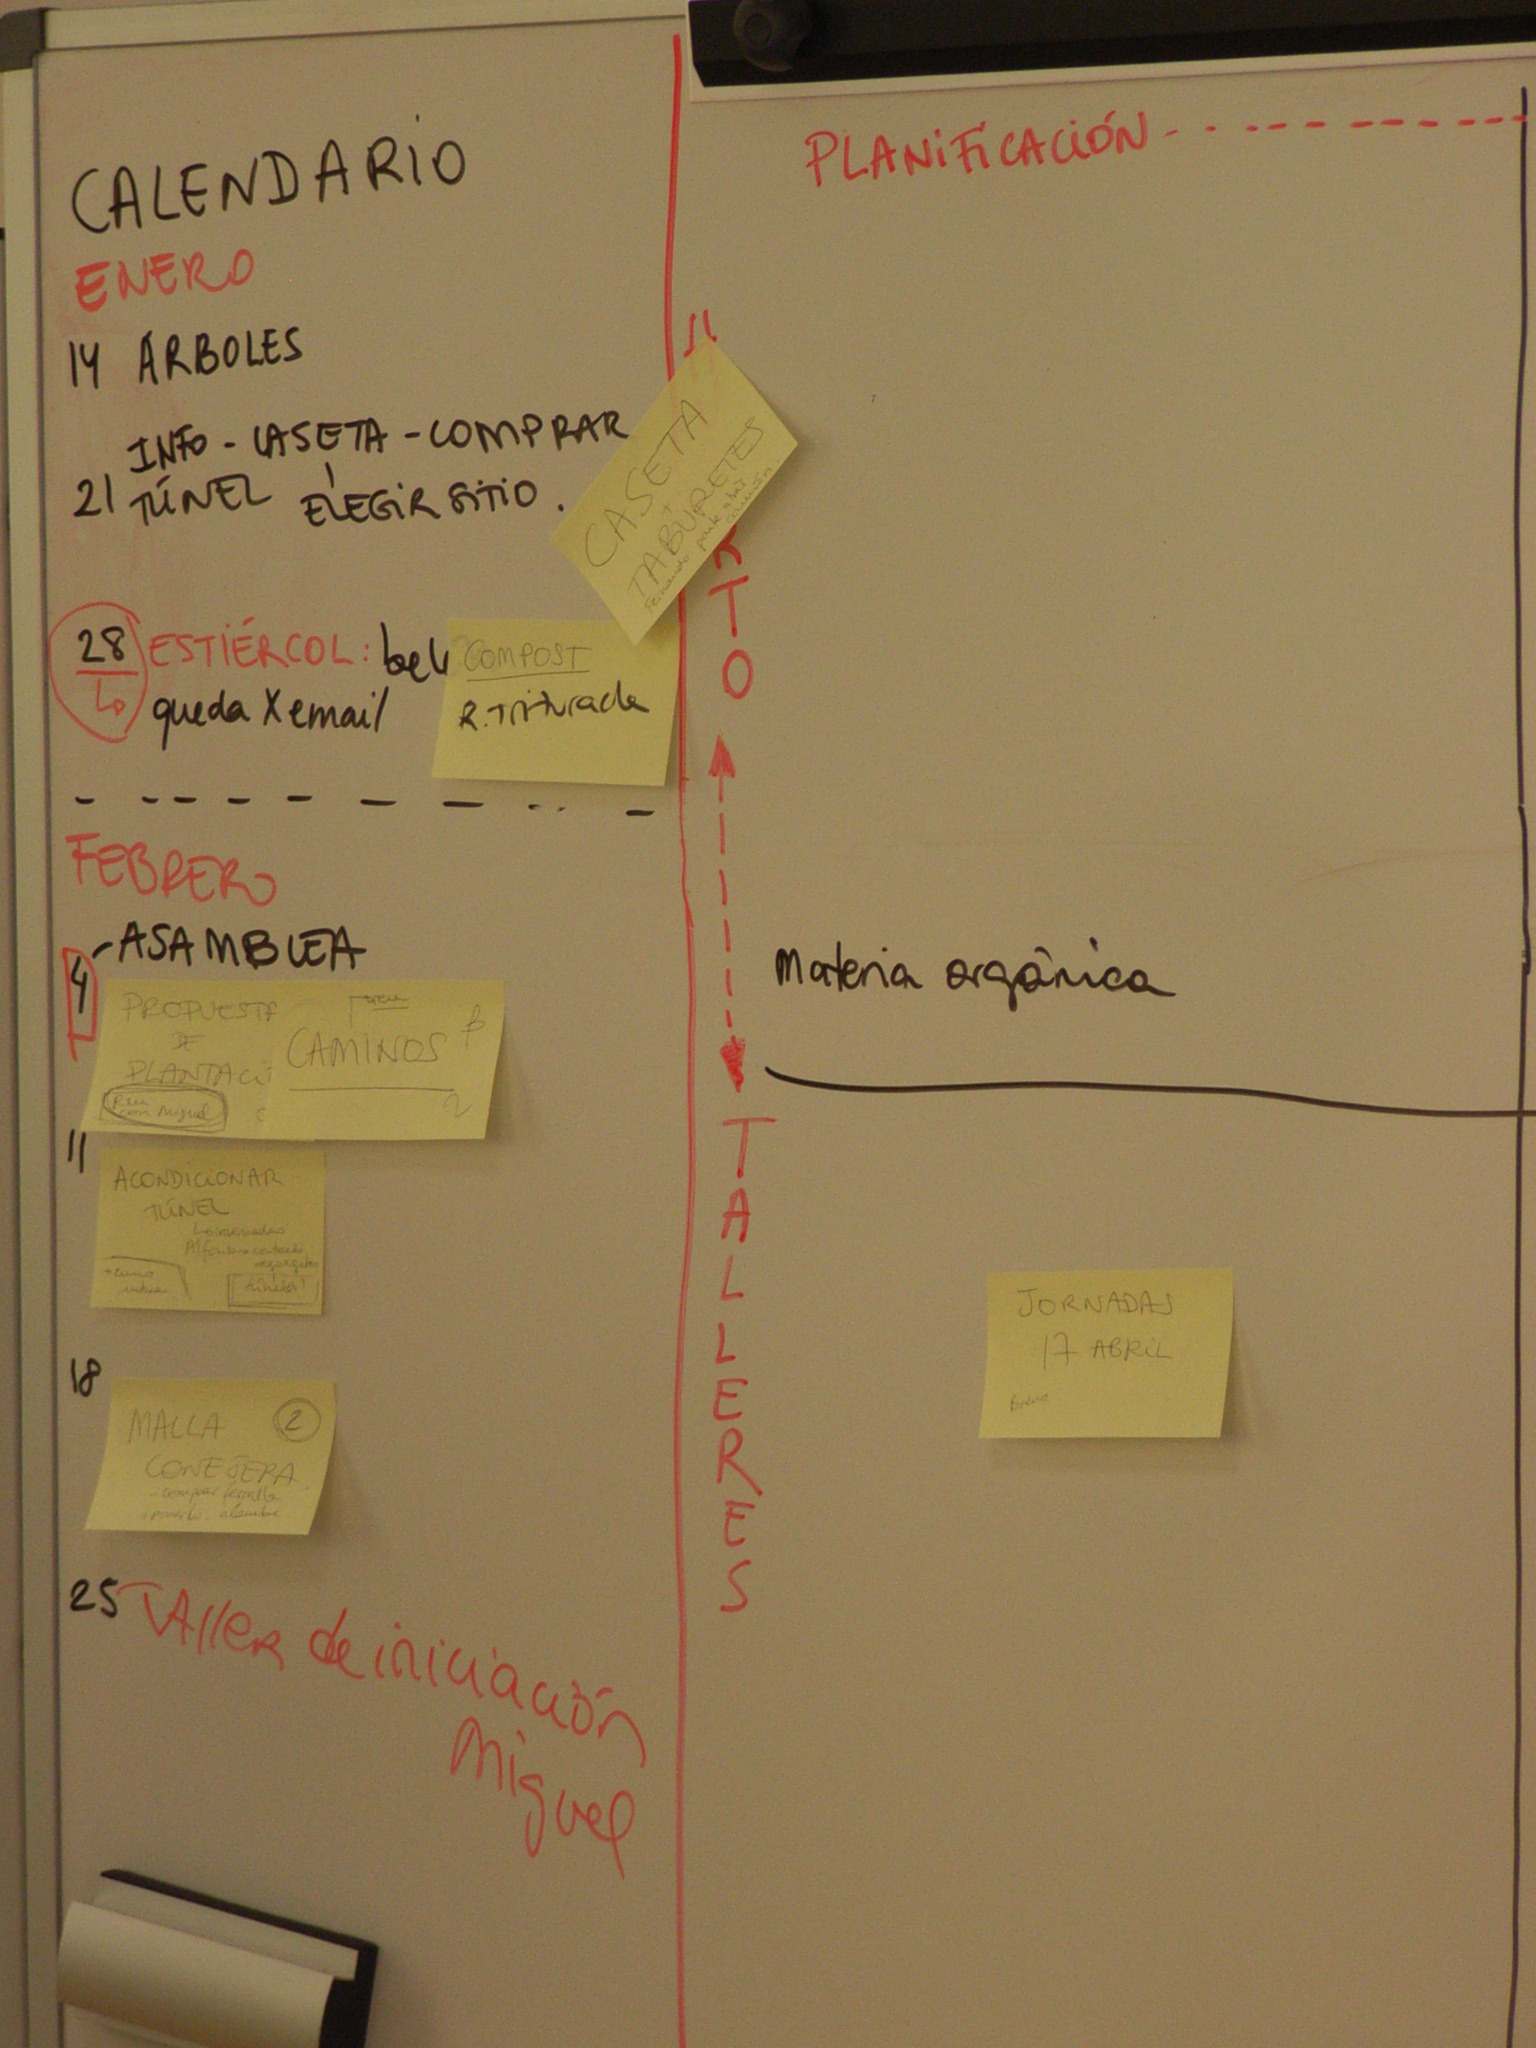 CALENDARIO
ENERO
14 ÁRBOLES
INFO - CASETA - COMPRAR
21 TÚNEL ELEGIR SITIO.
CASETA
+
TABURETES
28 ESTIÉRCOL:
queda X email
COMPOST
R. Triturada
FEBRERO
4 - ASAMBLEA
PROPUESTA
DE
PLANTACI
con Miguel
CAMINOS
2
11
ACONDICIONAR
TÚNEL
18
MALLA 2
CONEJERA
25 TALLER de iniciación
Miguel
PLANIFICACIÓN
RTO
Materia orgánica
TALLERES
JORNADAS
17 ABRIL